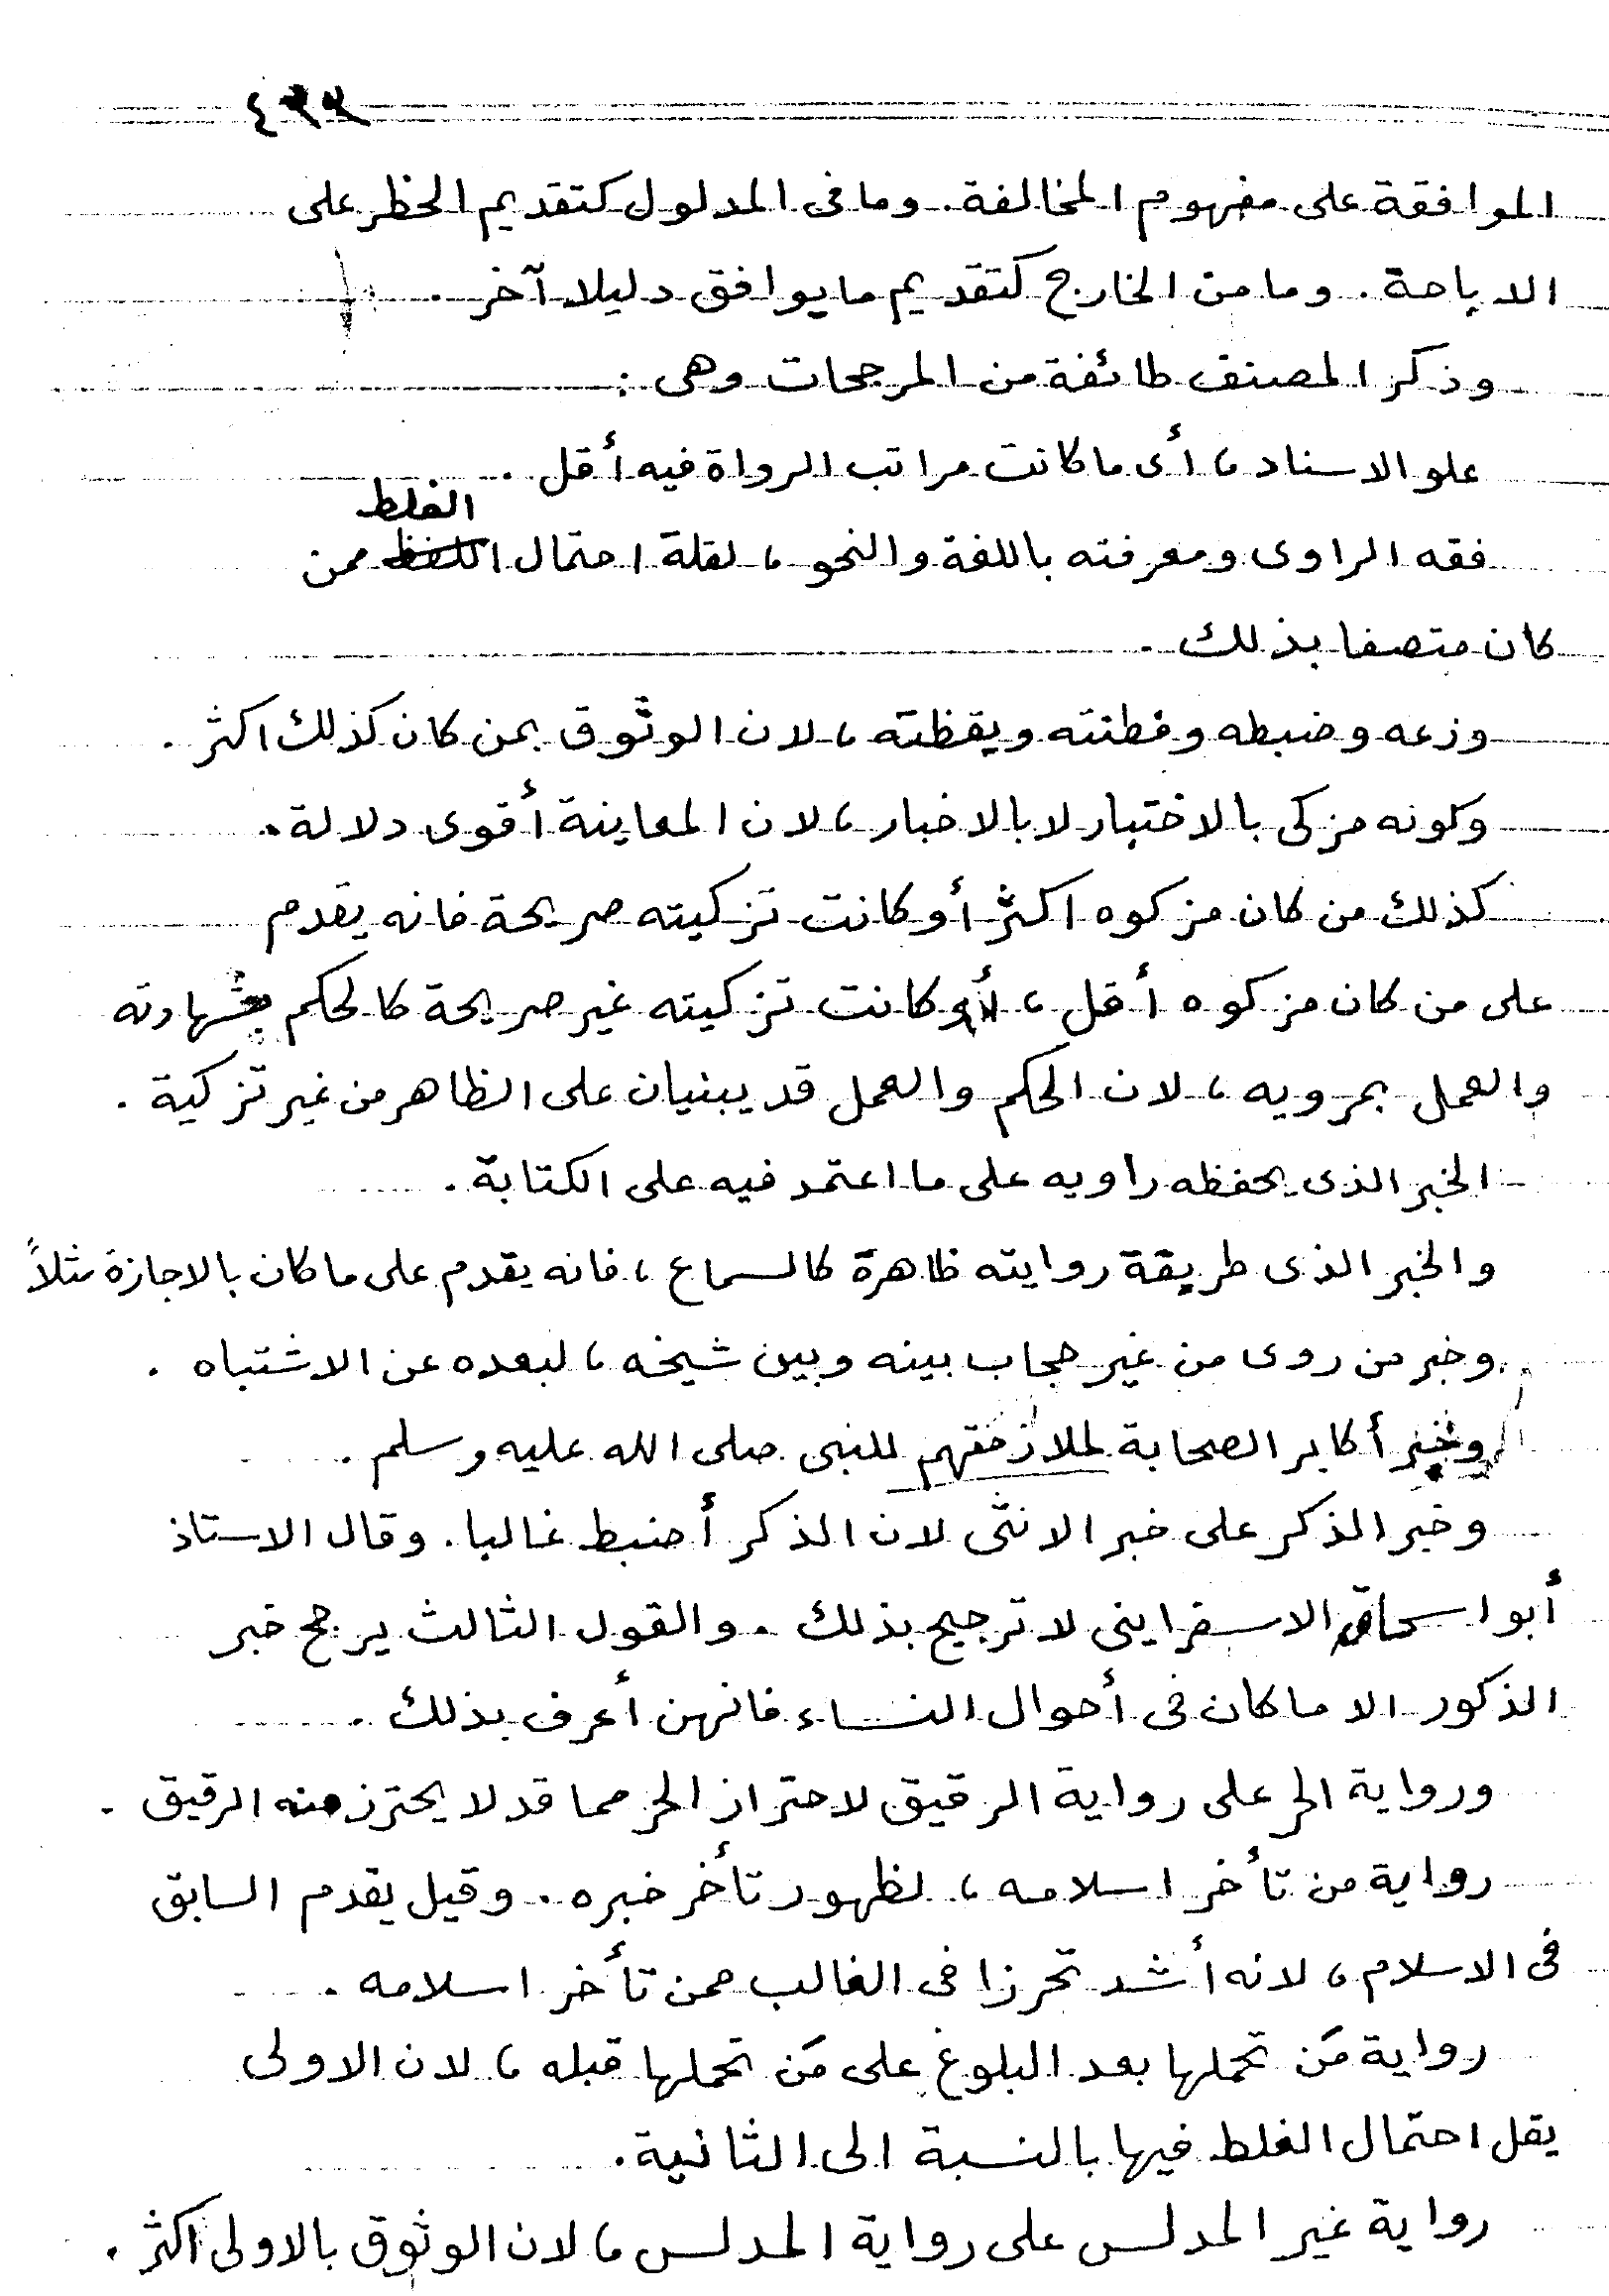 الموافقة على مفهوم المخالفة. وما فى المدلول كتقديم الحظر على
الاباحة. وما من الخارج كتقديم ما يوافق دليلا آخر .
وذكر المصنف طائفة من المرجحات وهى :
علو الاسناد ، أى ما كانت مراتب الرواة فيه أقل .
الغلط
فقه الراوى ومعرفته باللغة والنحو ، لقلة احتمال اللفظ ممن
كان متصفا بذلك .
ورعه وضبطه وفطنته ويقظته ، لان الوثوق بمن كان كذلك اكثر .
وكونه مزكى بالاختبار لا بالاخبار ، لان المعاينة أقوى دلالة .
كذلك من كان مزكوه اكثر أو كانت تزكيته صريحة فانه يقدم
على من كان مزكوه أقل ، أو كانت تزكيته غير صريحة كالحكم بشهادته
والعمل بمرويه ، لان الحكم والعمل قد يبنيان على الظاهر من غير تزكية .
الخبر الذى يحفظه راويه على ما اعتمد فيه على الكتابة .
والخبر الذى طريقة روايته ظاهرة كالسماع ، فانه يقدم على ما كان بالاجازة مثلاً
وخبر من روى من غير حجاب بينه وبين شيخه ، لبعده عن الاشتباه .
وخبر أكابر الصحابة لملازمتهم للنبى صلى الله عليه وسلم .
وخبر الذكر على خبر الانثى لان الذكر أضبط غالبا. وقال الاستاذ
أبو اسحاق الاسفراينى لا ترجيح بذلك . والقول الثالث يرجح خبر
الذكور الا ما كان فى أحوال النساء فانهن أعرف بذلك .
ورواية الحر على رواية الرقيق لاحتراز الحر مما قد لا يحترز منه الرقيق .
رواية من تأخر اسلامه ، لظهور تأخر خبره . وقيل يقدم السابق
فى الاسلام ، لانه أشد تحرزا فى الغالب ممن تأخر اسلامه .
رواية مَن تحملها بعد البلوغ على مَن تحملها قبله ، لان الاولى
يقل احتمال الغلط فيها بالنسبة الى الثانية .
رواية غير المدلس على رواية المدلس ، لان الوثوق بالاولى اكثر .